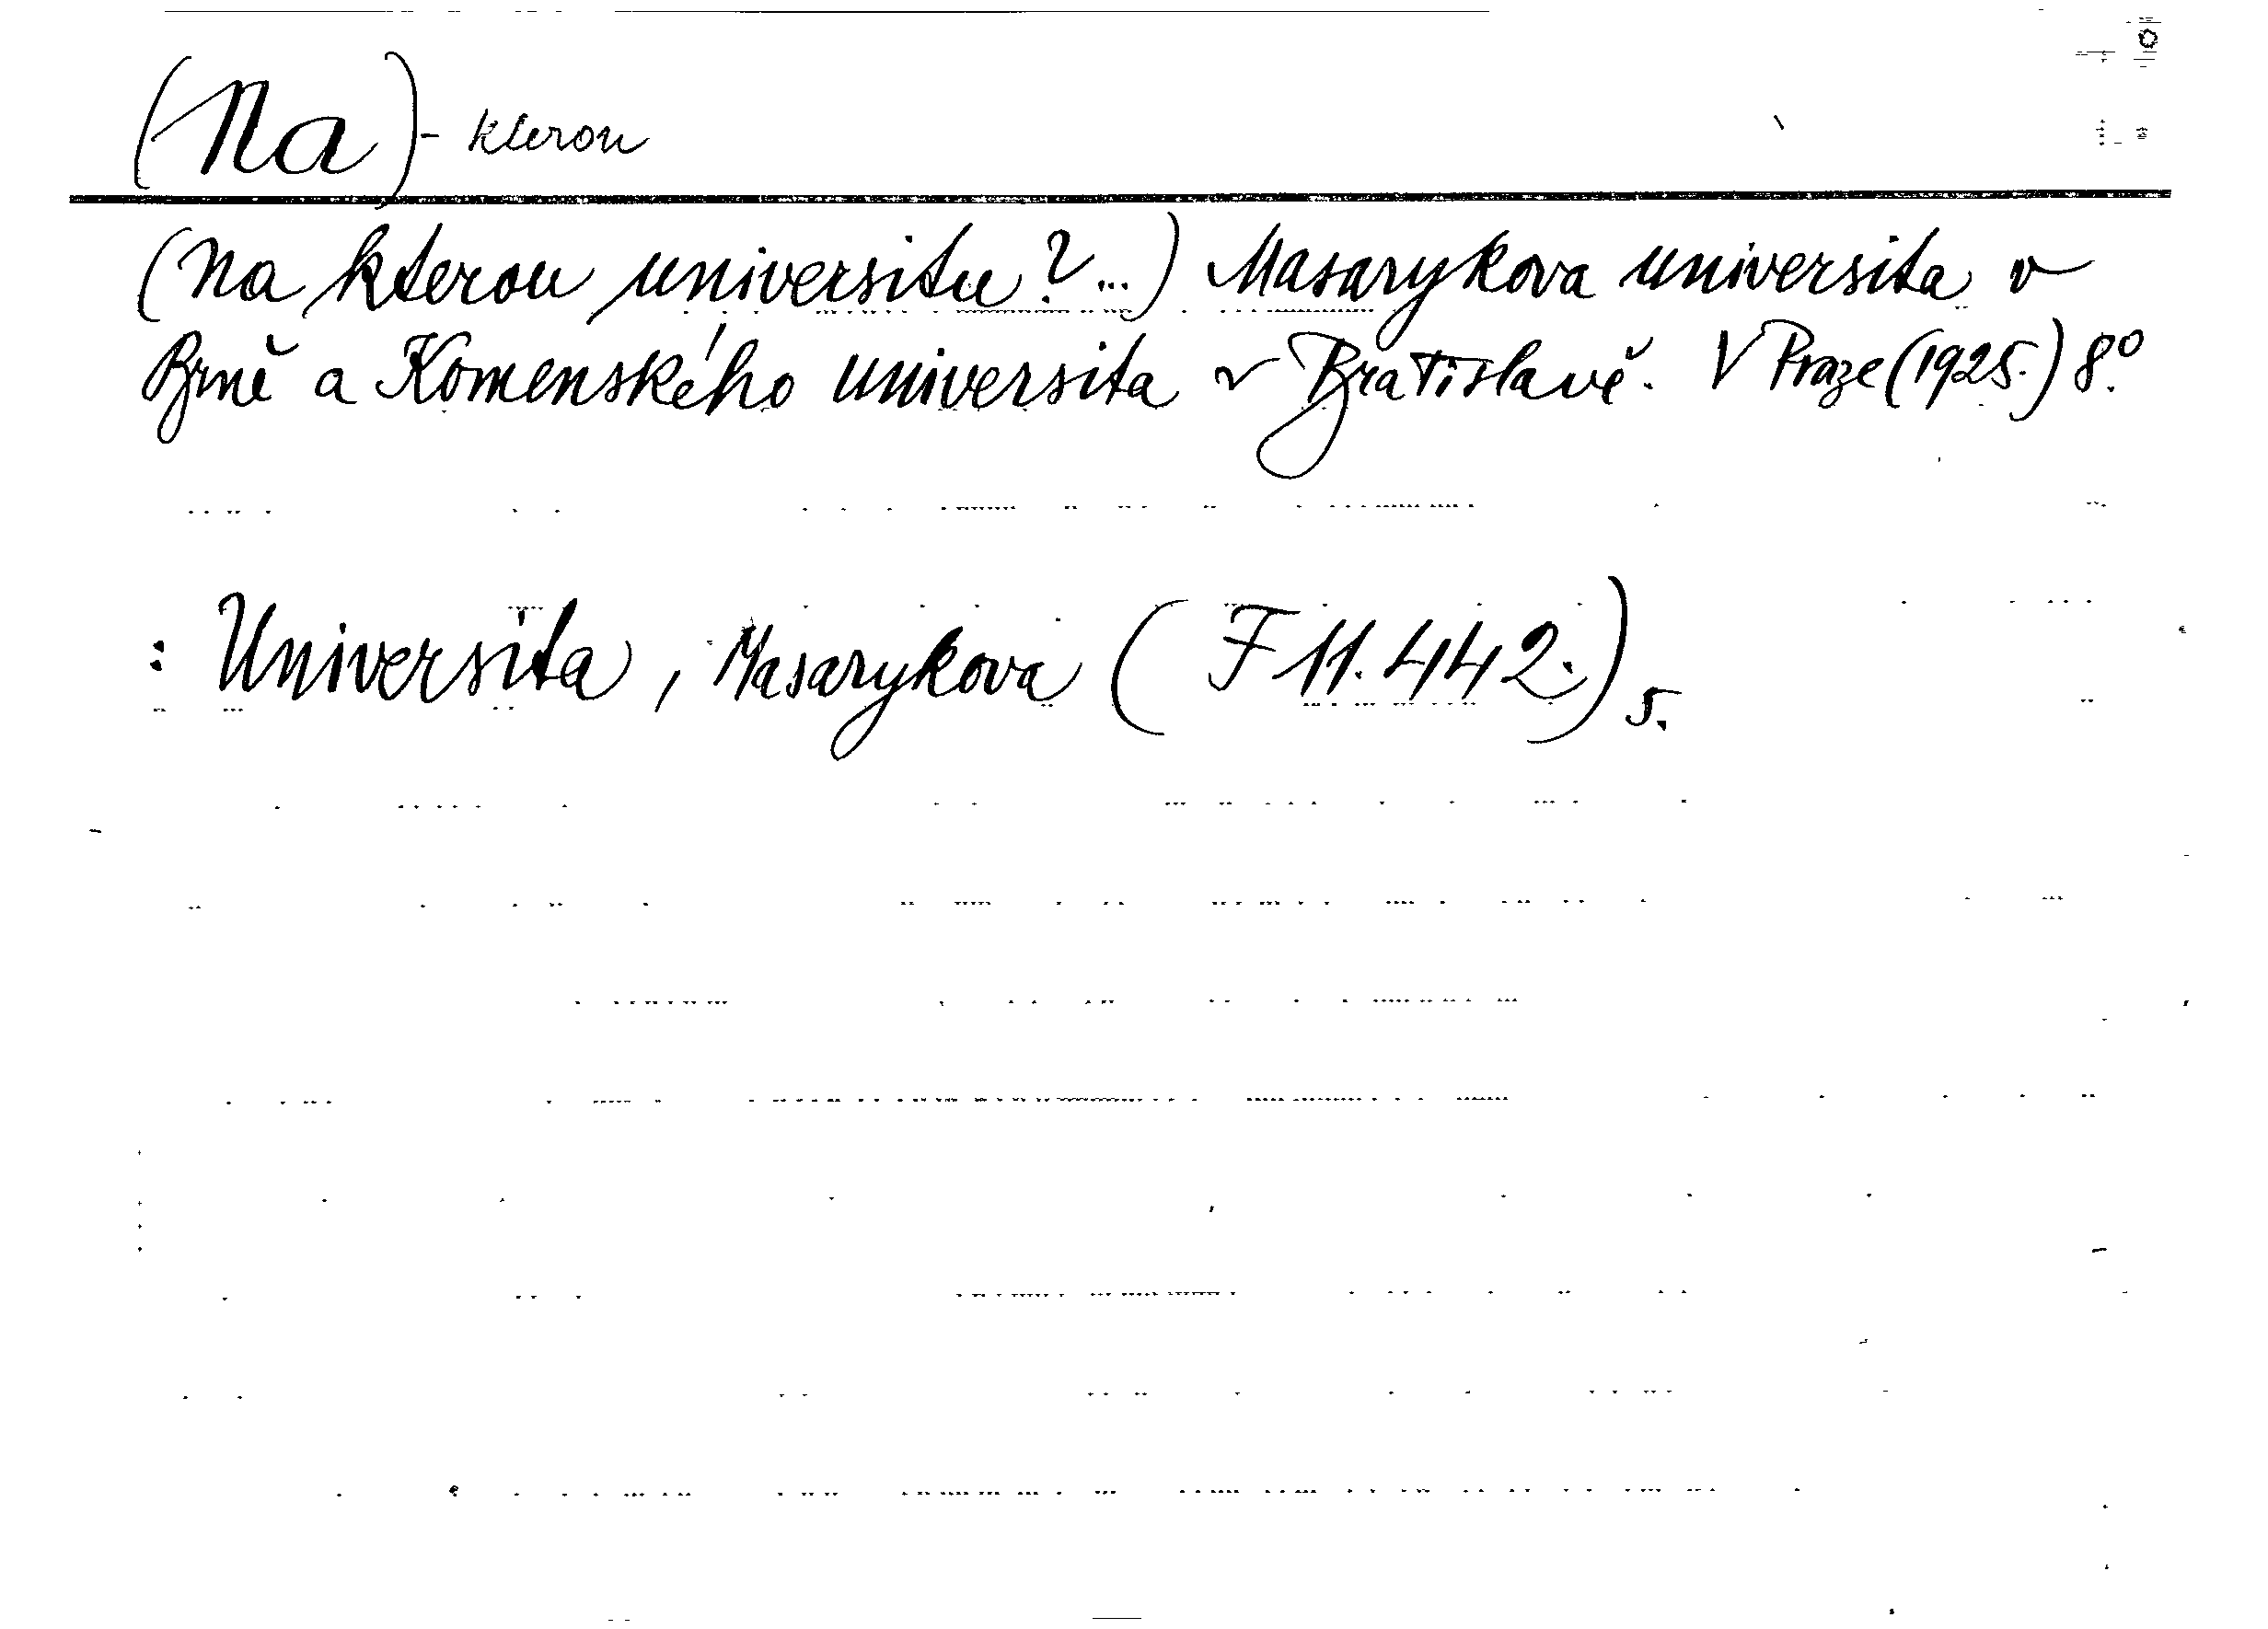 (Na) - kterou
(Na kterou universitu?...) Masarykova universita v
Brně a Komenského universita v Bratislavě. V Praze (1925.) 8.°
: Universita, Masarykova (F 11.442.) 5.